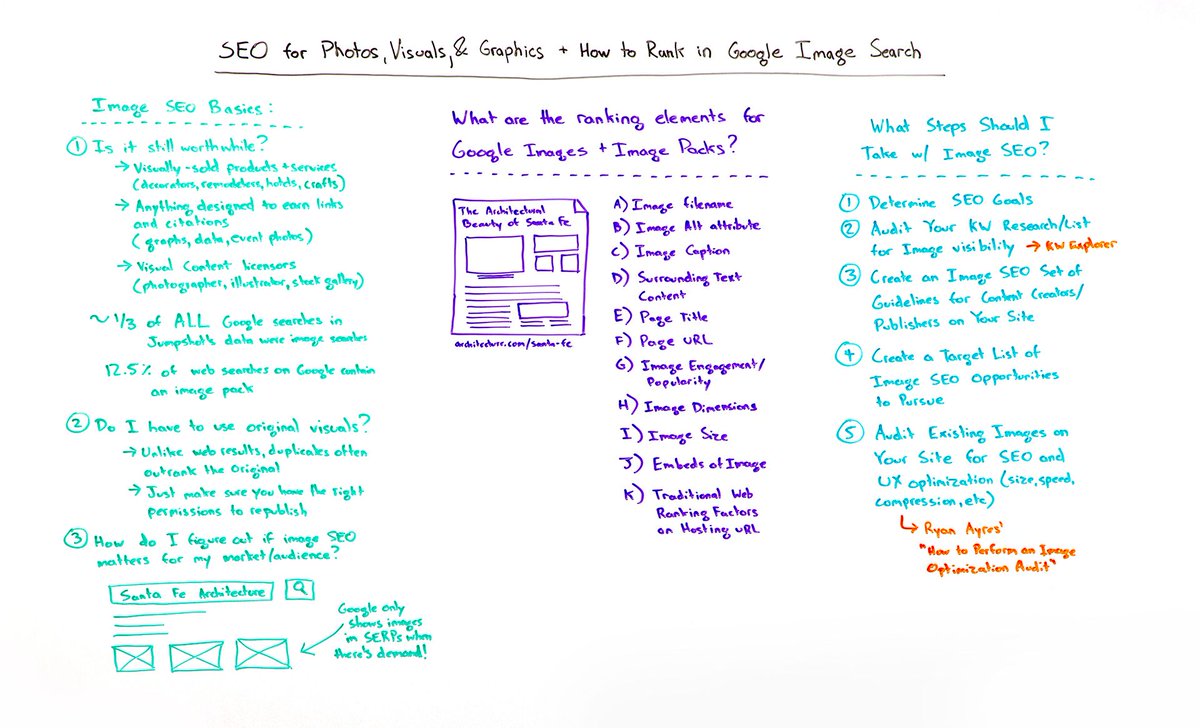 SEO for Photos, Visuals, & Graphics + How to Rank in Google Image Search
Image SEO Basics:
① Is it still worthwhile?
→ Visually-sold products + services
(decorators, remodelers, hotels, crafts)
→ Anything designed to earn links
and citations
(graphs, data, event photos)
→ Visual Content licensors
(photographer, illustrator, stock gallery)
~ 1/3 of ALL Google searches in
Jumpshot's data were image searches
12.5% of web searches on Google contain
an image pack
② Do I have to use original visuals?
→ Unlike web results, duplicates often
outrank the original
→ Just make sure you have the right
permissions to republish
③ How do I figure out if image SEO
matters for my market/audience?
Santa Fe Architecture
Google only
shows images
in SERPs when
there's demand!
What are the ranking elements for
Google Images + Image Packs?
The Architectural
Beauty of Santa Fe
architecture.com/santa-fe
A) Image filename
B) Image Alt attribute
C) Image Caption
D) Surrounding Text
Content
E) Page Title
F) Page URL
G) Image Engagement/
Popularity
H) Image Dimensions
I) Image Size
J) Embeds of Image
K) Traditional Web
Ranking Factors
on Hosting URL
What Steps Should I
Take w/ Image SEO?
① Determine SEO Goals
② Audit Your KW Research/List
for Image visibility → KW Explorer
③ Create an Image SEO Set of
Guidelines for Content Creators/
Publishers on Your Site
④ Create a Target List of
Image SEO Opportunities
to Pursue
⑤ Audit Existing Images on
Your Site for SEO and
UX optimization (size, speed,
compression, etc)
↳ Ryan Ayres'
"How to Perform an Image
Optimization Audit"